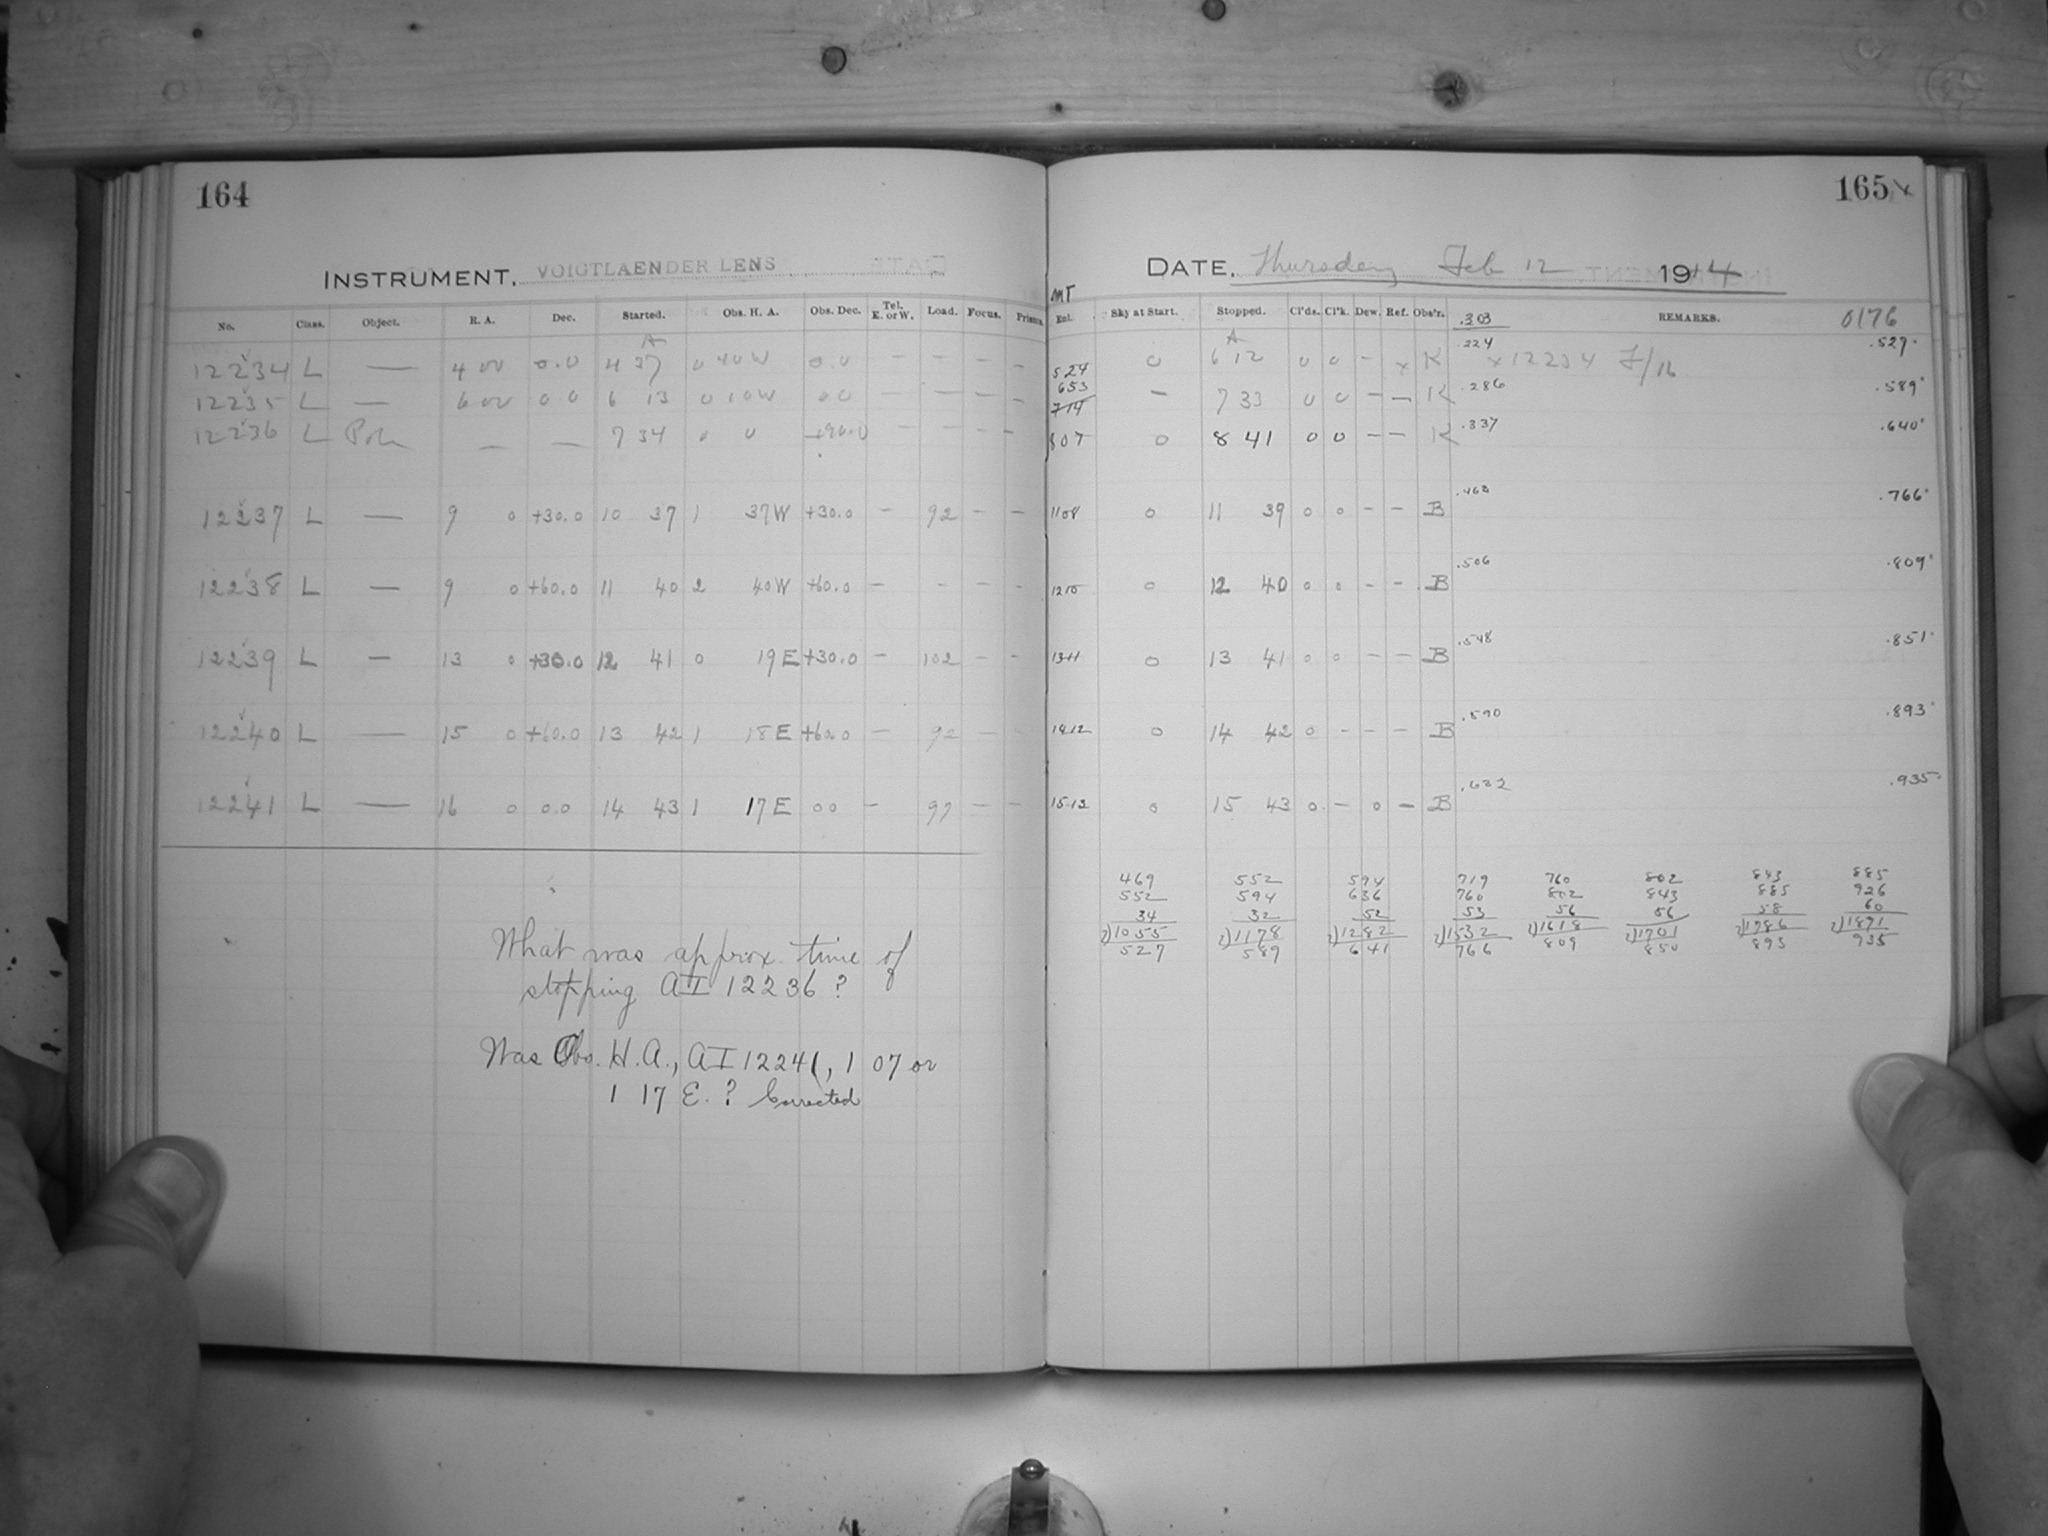 164
INSTRUMENT. VOIGTLAENDER LENS
No. Class. Object. R. A. Dec. Started. Obs. H. A. Obs. Dec. Tel. E. or W. Load. Focus. Prisms.
A
12234 L — 4 00 0.0 4 37 0 40 W 0.0 — — — —
12235 L — 6 00 0 0 6 13 0 10 W 0 0 — — — —
12236 L Pole — — 7 34 0 0 +90.0 — — — —
12237 L — 9 0 +30.0 10 37 1 37 W +30.0 — 92 — —
12238 L — 9 0 +60.0 11 40 2 40 W +60.0 — — — —
12239 L — 13 0 +30.0 12 41 0 19 E +30.0 — 102 — —
12240 L — 15 0 +60.0 13 42 1 18 E +60.0 — 92 — —
12241 L — 16 0 0.0 14 43 1 17 E 0 0 — 97 — —
What was approx. time of
stopping AI 12236?
Was Obs. H.A., AI 12241, 1 07 or
1 17 E.? Corrected
165
DATE. Thursday Feb 12 1914
MT
Sky at Start. Stopped. Cl'ds. Cl'k. Dew. Ref. Obs'r. .303 REMARKS. 0176
A
524 0 6 12 0 0 — x K .224 x 12234 F/16 .527
653
714 — 7 33 0 0 — — K .286 .589
807 0 8 41 0 0 — — K .337 .640
1108 0 11 39 0 0 — — B .463 .766
1210 0 12 40 0 0 — — B .506 .809
1311 0 13 41 0 0 — — B .548 .851
1412 0 14 42 0 — — — B .590 .893
1512 0 15 43 0 — 0 — B .632 .935
469 552 594 719 760 802 843 885
552 594 636 760 802 843 885 926
34 32 52 53 56 56 58 60
2)1055 2)1178 2)1282 2)1532 2)1618 2)1701 2)1786 2)1871
527 589 641 766 809 850 893 935